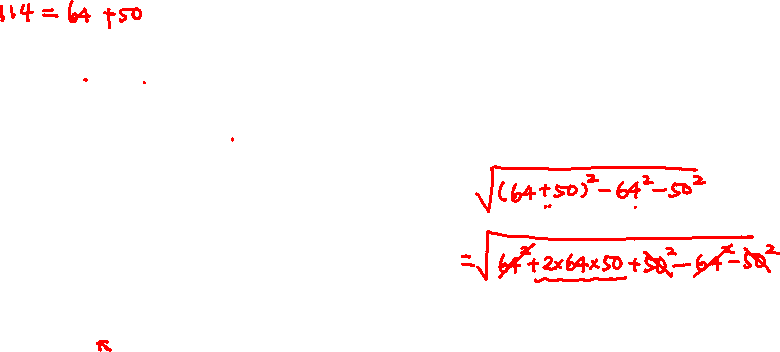 114 = 64 + 50
√((64+50)² - 64² - 50²)
= √(64² + 2×64×50 + 50² - 64² - 50²)